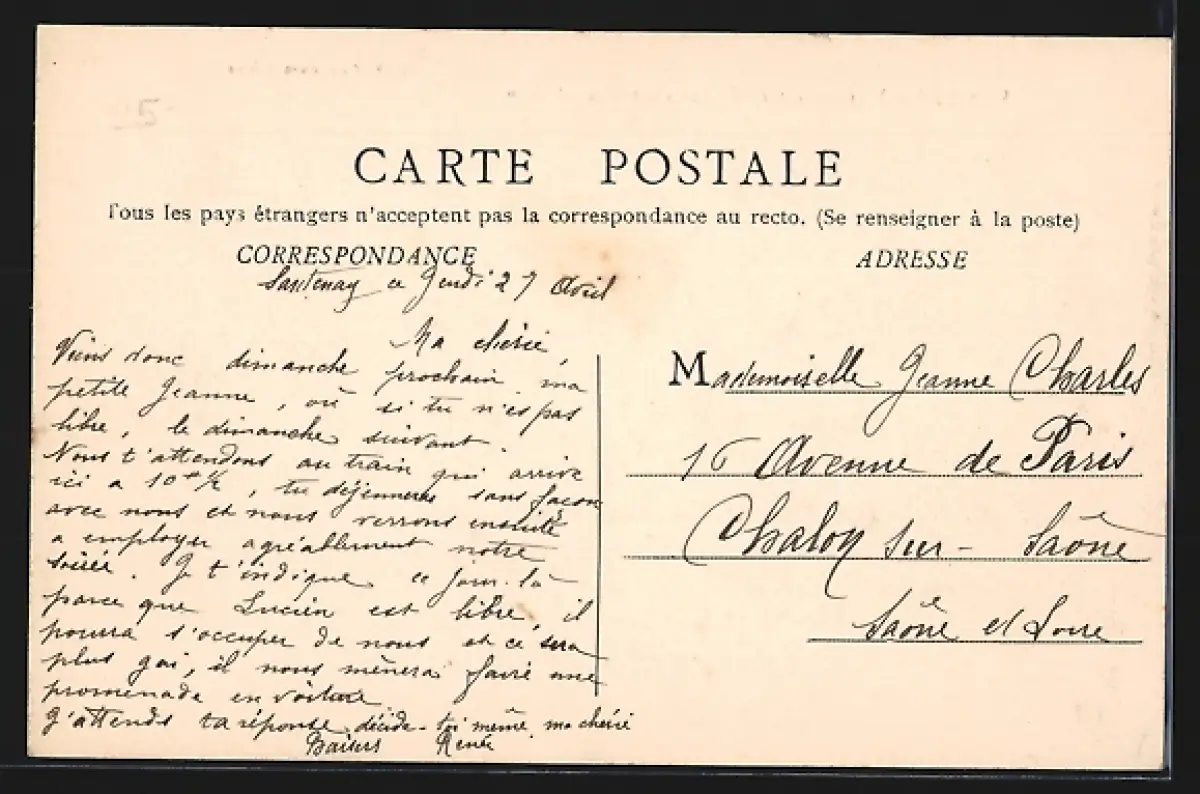 5
CARTE POSTALE
Tous les pays étrangers n'acceptent pas la correspondance au recto. (Se renseigner à la poste)
CORRESPONDANCE
ADRESSE
Santenay ce Jeudi 27 Avril
Ma chérie,
Viens donc dimanche prochain, ma
petite Jeanne, où si tu n'es pas
libre, le dimanche suivant.
Nous t'attendons au train qui arrive
ici a 10 h ½, tu déjeuneras sans façon
avec nous et nous verrons ensuite
a employer agréablement notre
soirée. Je t'indique ce jour-là
parce que Lucien est libre, il
pourra s'occuper de nous et ce sera
plus gai, il nous mènera faire une
promenade en voiture
J'attends ta réponse, décide-toi même, ma chérie
Baisers Renée
Mademoiselle Jeanne Charles
16 Avenue de Paris
Chalon sur-Saône
Saône et Loire